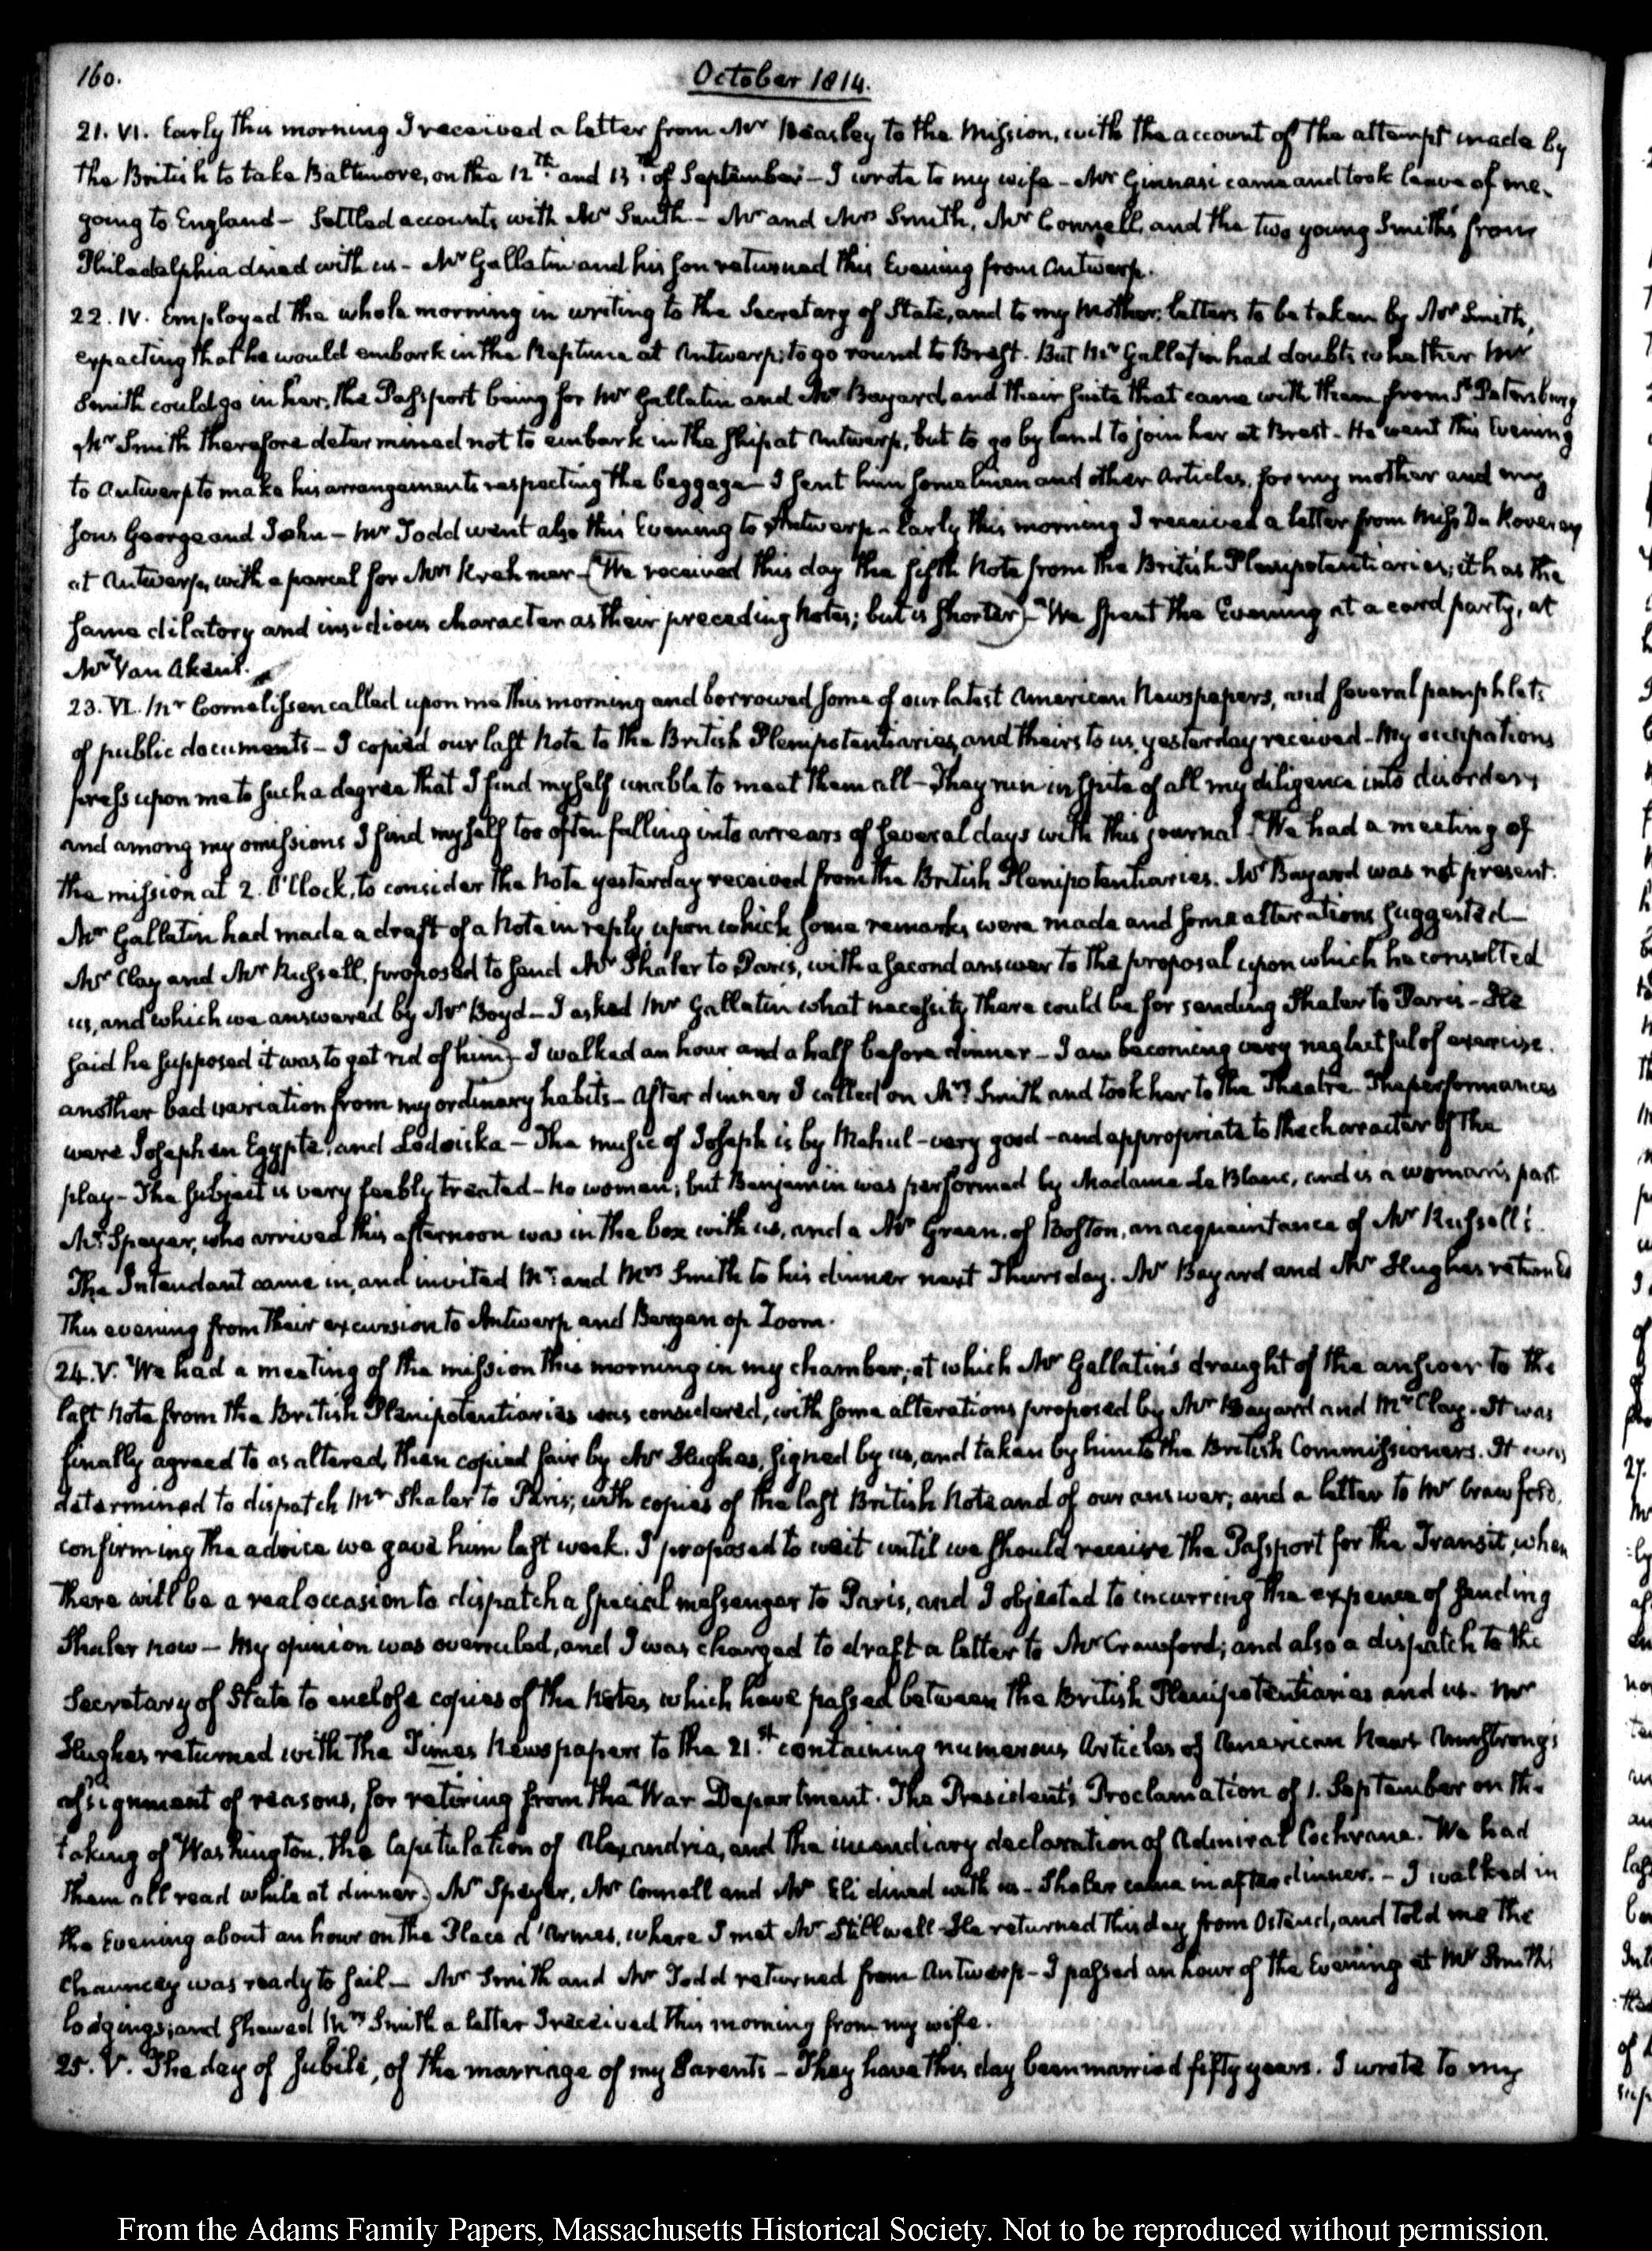 160.
October 1814.
21. VI. Early this morning I received a letter from Mr Beasley to the Mission, with the account of the attempt made by
the British to take Baltimore, on the 12th. and 13th. of September — I wrote to my wife — Mr Ginnasi came and took leave of me.
going to England — Settled accounts with Mr Smith — Mr and Mrs Smith, Mr Connell, and the two young Smith's from
Philadelphia dined with us — Mr Gallatin and his son returned this Evening from Antwerp.
22. IV. Employed the whole morning in writing to the Secretary of State, and to my Mother; letters to be taken by Mr Smith,
expecting that he would embark in the Neptune at Antwerp; to go round to Brest. But Mr Gallatin had doubts whether Mr
Smith could go in her, the Passport being for Mr Gallatin and Mr Bayard, and their suite that came with them from St Petersburg
Mr Smith therefore determined not to embark in the ship at Antwerp, but to go by land to join her at Brest. He went this Evening
to Antwerp to make his arrangements respecting the baggage — I sent him some linen and other Articles, for my mother and my
sons George and John — Mr Todd went also this Evening to Antwerp — Early this morning I received a letter from Miss Du Roveray
at Antwerp, with a parcel for Mrs Krehmer — (We received this day the fifth Note from the British Plenipotentiaries; it has the
same dilatory and insidious character as their preceding Notes; but is shorter) — We spent the Evening at a card party, at
Mrs Van Aken's.
23. VI. Mr Cornelissen called upon me this morning and borrowed some of our latest American Newspapers, and several pamphlets
of public documents — I copied our last Note to the British Plenipotentiaries, and theirs to us, yesterday received — My occupations
press upon me to such a degree that I find myself unable to meet them all — They run in spite of all my diligence into disorder,
and among my omissions I find myself too often falling into arrears of several days with this journal. (We had a meeting of
the mission at 2. O'Clock, to consider the Note yesterday received from the British Plenipotentiaries. Mr Bayard was not present.
Mr Gallatin had made a draft of a Note in reply, upon which some remarks were made and some alterations suggested —
Mr Clay and Mr Russell, proposed to send Mr Shaler to Paris, with a second answer to the proposal upon which he consulted
us, and which we answered by Mr Boyd — I asked Mr Gallatin what necessity there could be for sending Shaler to Paris — He
said he supposed it was to get rid of him) — I walked an hour and a half before dinner — I am becoming very neglectful of exercise.
another bad variation from my ordinary habits — After dinner I called on Mrs Smith and took her to the Theatre — The performances
were Joseph en Egypte, and Lodoiska — The music of Joseph is by Mehul — very good — and appropriate to the character of the
play — The subject is very feebly treated — No woman; but Benjamin was performed by Madame Le Blanc, and is a woman's part
Mr Speyer, who arrived this afternoon was in the box with us, and a Mr Green, of Boston, an acquaintance of Mr Russell's.
The Intendant came in, and invited Mr and Mrs Smith to his dinner next Thursday. Mr Bayard and Mr Hughes returned
this evening from their excursion to Antwerp and Bergen op Zoom.
24. V. We had a meeting of the mission this morning in my chamber; at which Mr Gallatin's draught of the answer to the
last Note from the British Plenipotentiaries was considered, with some alterations proposed by Mr Bayard and Mr Clay. It was
finally agreed to as altered, then copied fair by Mr Hughes, signed by us, and taken by him to the British Commissioners. It was
determined to dispatch Mr Shaler to Paris, with copies of the last British Note and of our answer; and a letter to Mr Crawford,
confirming the advice we gave him last week. I proposed to wait until we should receive the Passport for the Transit, when
there will be a real occasion to dispatch a special messenger to Paris, and I objected to incurring the expence of sending
Shaler now — My opinion was overruled, and I was charged to draft a letter to Mr Crawford; and also a dispatch to the
Secretary of State to enclose copies of the Notes which have passed between the British Plenipotentiaries and us. Mr
Hughes returned with the Times Newspapers to the 21.st containing numerous Articles of American News Armstrong's
assignment of reasons, for retiring from the War Department. The President's Proclamation of 1. September on the
taking of Washington, the Capitulation of Alexandria, and the incendiary declaration of Admiral Cochrane. We had
them all read while at dinner.) Mr Speyer, Mr Connell and Mr Eli dined with us — Shaler came in after dinner. — I walked in
the Evening about an hour on the Place d'Armes, where I met Mr Stillwell — He returned this day from Ostend, and told me the
Chauncey was ready to sail — Mr Smith and Mr Todd returned from Antwerp — I passed an hour of the Evening at Mr Smith's
lodgings; and shewed Mrs Smith a letter I received this morning from my wife.
25. V. The day of Jubilé, of the marriage of my Parents — They have this day been married fifty years. I wrote to my
From the Adams Family Papers, Massachusetts Historical Society. Not to be reproduced without permission.